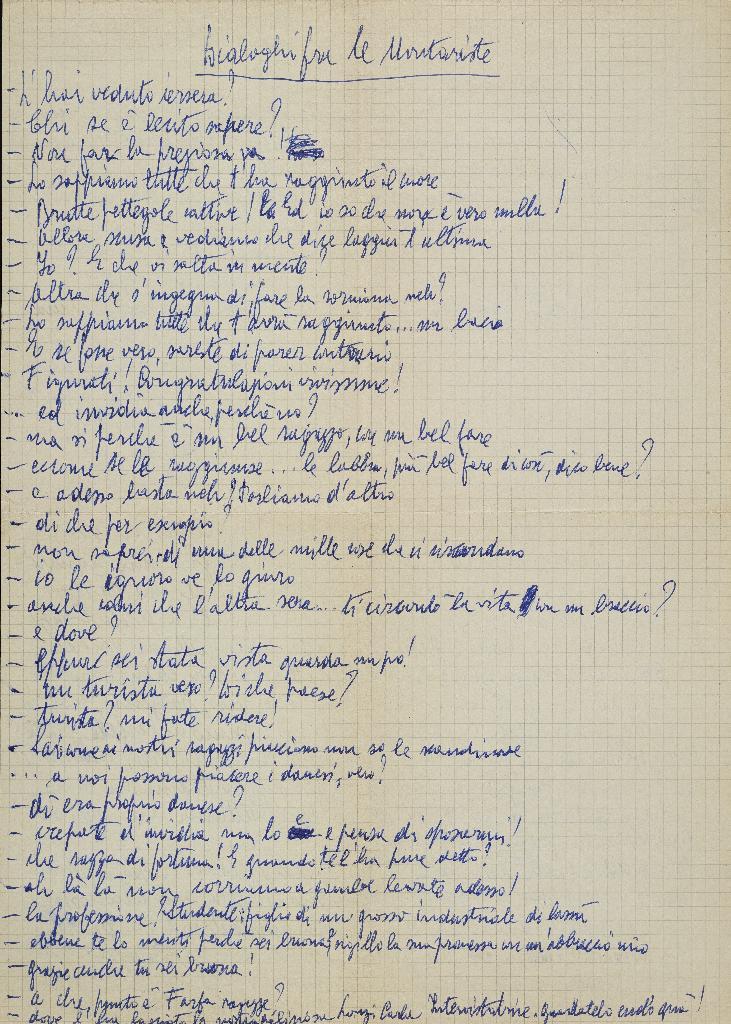 Dialoghi fra le
- L'hai veduto iersera?
- Chi se è lecito sapere?
- Non far la preziosa va!
- Lo sappiamo tutte che t'ha raggiunto il cuore
- Brutte pettegole cattive! Ed io so che non è vero nulla!
- Allora, scusa e vediamo che dice l'ultima
- Io? E che vi salta in mente?
- Altra che s'ingegna di fare la sorniona neh?
- Lo sappiamo tutte che t'avrà raggiunto... un bacio
- E se fosse vero, sareste di parer contrario
- Figurati! Congratulazioni vivissime!
... ed invidia anche, perché no?
- ma sì perché è un bel ragazzo, con un bel fare
- eccome se le raggiunse... le labbra, più bel fare di così, dico bene?
- e adesso basta neh? Parliamo d'altro
- di che per esempio?
- non saprei, di una delle mille cose che ci circondano
- io le ignoro ve lo giuro
- anche che l'altra sera... ti circondò la vita con un braccio?
- e dove?
- Eppure sei stata vista guarda un po'!
- un turista vero? Di che paese?
- turista? mi fate ridere!
- Sai come ai nostri ragazzi piacciono non so, le scandinave
... a noi possono piacere i danesi, vero?
- di' era proprio danese?
- crepate d'invidia ma lo è e pensa di sposarmi!
- che razza di fortuna! E quando te l'ha pure detto?
- oh là là non corriamo a gambe levate adesso!
- la professione? Studente: figlio di un grosso industriale di lassù
- ebbene te lo meriti perché sei buona, sigillo la sua promessa con un abbraccio mio
- grazie anche tu sei buona!
- a che punto è Farfa ragazze?
- dove l'ha lasciato la Carla Intervistatrice. guardatelo eccolo qua!